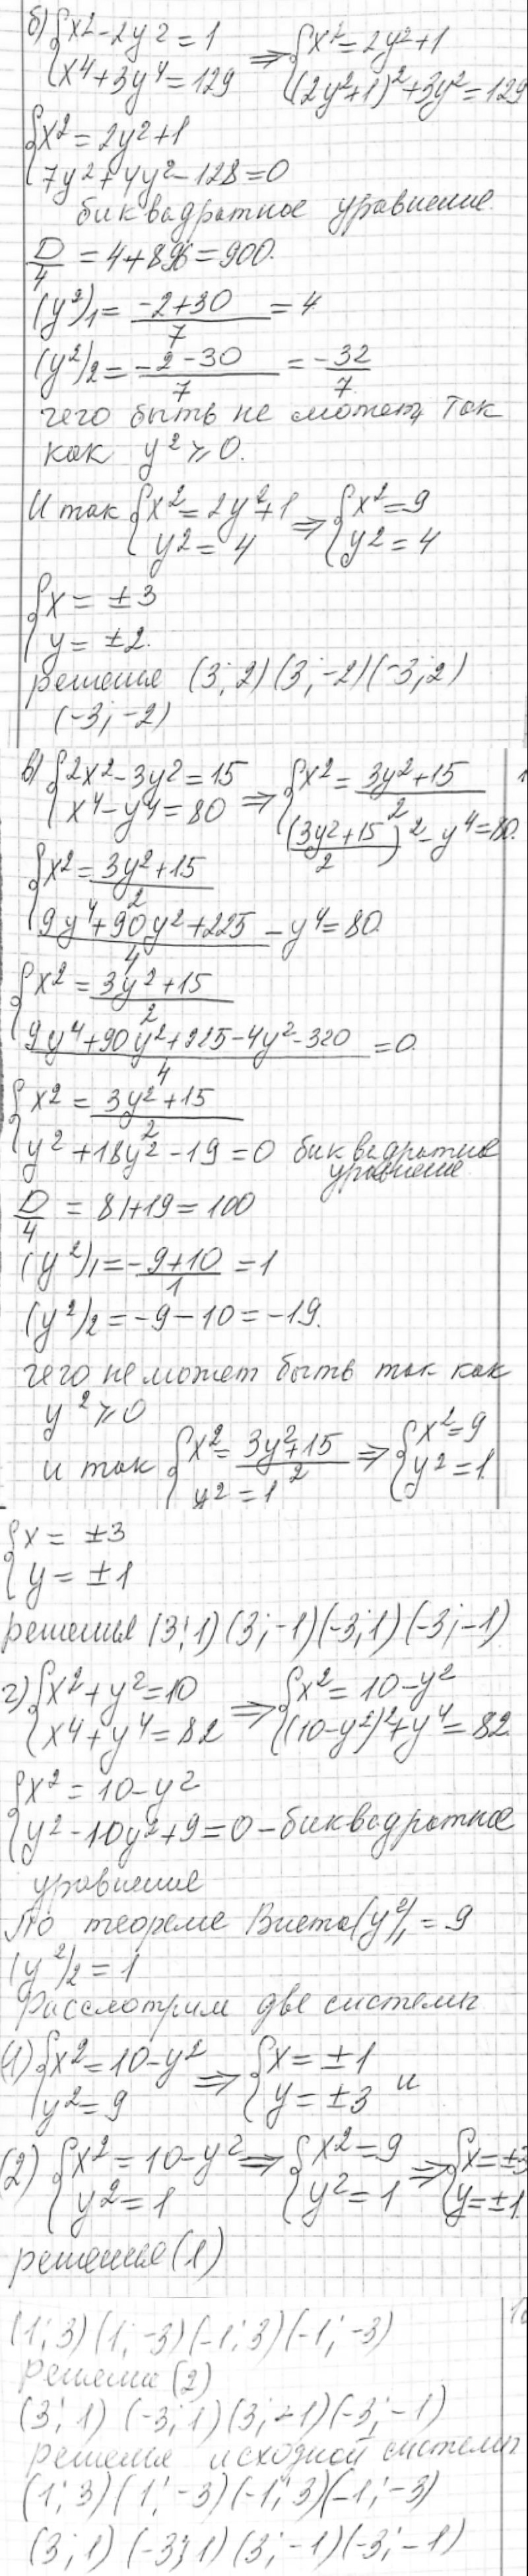 б) {x² - 2y² = 1 ⇒ {x² = 2y² + 1
{x⁴ + 3y⁴ = 129 {(2y²+1)² + 3y² = 129
{x² = 2y² + 1
{7y² + 4y² - 128 = 0
биквадратное уравнение
D/4 = 4 + 896 = 900.
(y²)₁ = (-2+30)/7 = 4
(y²)₂ = (-2-30)/7 = -32/7
чего быть не может, так
как y² ⩾ 0.
И так {x² = 2y² + 1 ⇒ {x² = 9
{y² = 4 {y² = 4
{x = ±3
{y = ±2.
решение (3; 2) (3; -2) (-3; 2)
(-3; -2)
в) {2x² - 3y² = 15 ⇒ {x² = (3y²+15)/2
{x⁴ - y⁴ = 80 {((3y²+15)/2)² - y⁴ = 80.
{x² = (3y²+15)/2
{(9y⁴+90y²+225)/4 - y⁴ = 80.
{x² = (3y²+15)/2
{(9y⁴+90y²+225-4y²-320)/4 = 0.
{x² = (3y²+15)/2
{y² + 18y² - 19 = 0 биквадратное
уравнение
D/4 = 81+19 = 100
(y²)₁ = (-9+10)/1 = 1
(y²)₂ = -9-10 = -19.
чего не может быть так как
y² ⩾ 0
и так {x² = (3y²+15)/2 ⇒ {x² = 9
{y² = 1 {y² = 1
{x = ±3
{y = ±1
решения (3; 1) (3; -1) (-3; 1) (-3; -1)
г) {x² + y² = 10 ⇒ {x² = 10 - y²
{x⁴ + y⁴ = 82 {(10-y²)² + y⁴ = 82.
{x² = 10 - y²
{y² - 10y² + 9 = 0 - биквадратное
уравнение
По теореме Виета (y²)₁ = 9
(y²)₂ = 1
Рассмотрим две системы
(1) {x² = 10 - y² ⇒ {x = ±1
{y² = 9 {y = ±3 и
(2) {x² = 10 - y² ⇒ {x² = 9 ⇒ {x = ±3
{y² = 1 {y² = 1 {y = ±1
решения (1)
(1; 3) (1; -3) (-1; 3) (-1; -3)
Решение (2)
(3; 1) (-3; 1) (3; -1) (-3; -1)
решения исходной системы
(1; 3) (1; -3) (-1; 3) (-1; -3)
(3; 1) (-3; 1) (3; -1) (-3; -1)